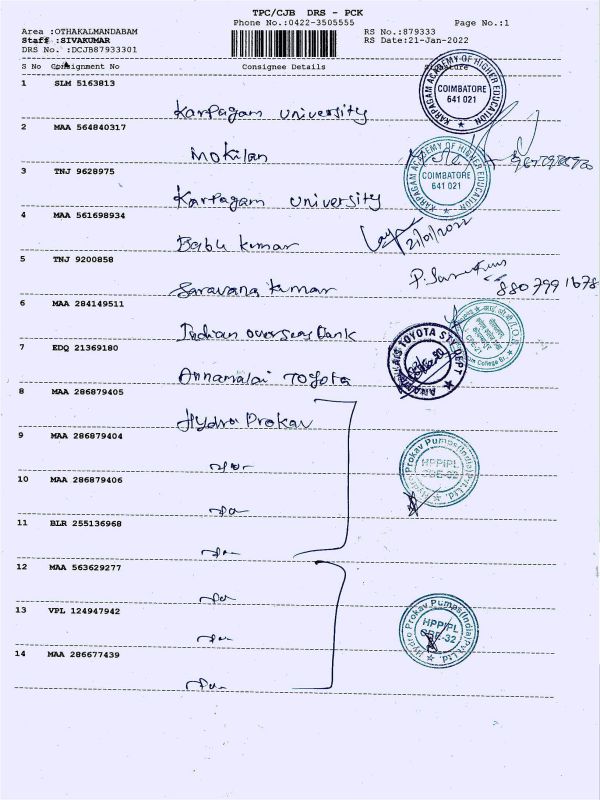 TPC/CJB DRS - PCK
Phone No.:0422-3505555
Page No.:1
Area :OTHAKALMANDABAM
Staff :SIVAKUMAR
DRS No. :DCJB87933301
RS No.:879333
RS Date:21-Jan-2022
S No Consignment No Consignee Details Signature
1 SLM 5163813
Karpagam University
KARPAGAM ACADEMY OF HIGHER EDUCATION
COIMBATORE
641 021
2 MAA 564840317
Mokilan
3 TNJ 9628975
Karpagam University
KARPAGAM ACADEMY OF HIGHER EDUCATION
COIMBATORE
641 021
4 MAA 561698934
Babu Kumar
21/01/2022
5 TNJ 9200858
Saravana Kumar
880 799 1678
6 MAA 284149511
Indian overseas Bank
7 EDQ 21369180
Annamalai Toyota
TOYOTA
DEPT
8 MAA 286879405
Hydro Prokav
9 MAA 286879404
Hydro Prokav Pumps(India)Pvt.Ltd.
HPPIPL
CBE-32
10 MAA 286879406
11 BLR 255136968
12 MAA 563629277
13 VPL 124947942
Hydro Prokav Pumps(India)Pvt.Ltd.
HPPIPL
CBE-32
14 MAA 286677439